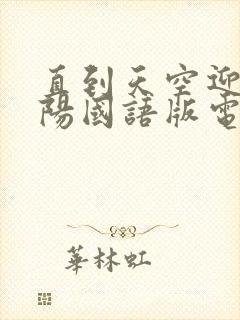 直到天空迎
陽國語版電
華林虹